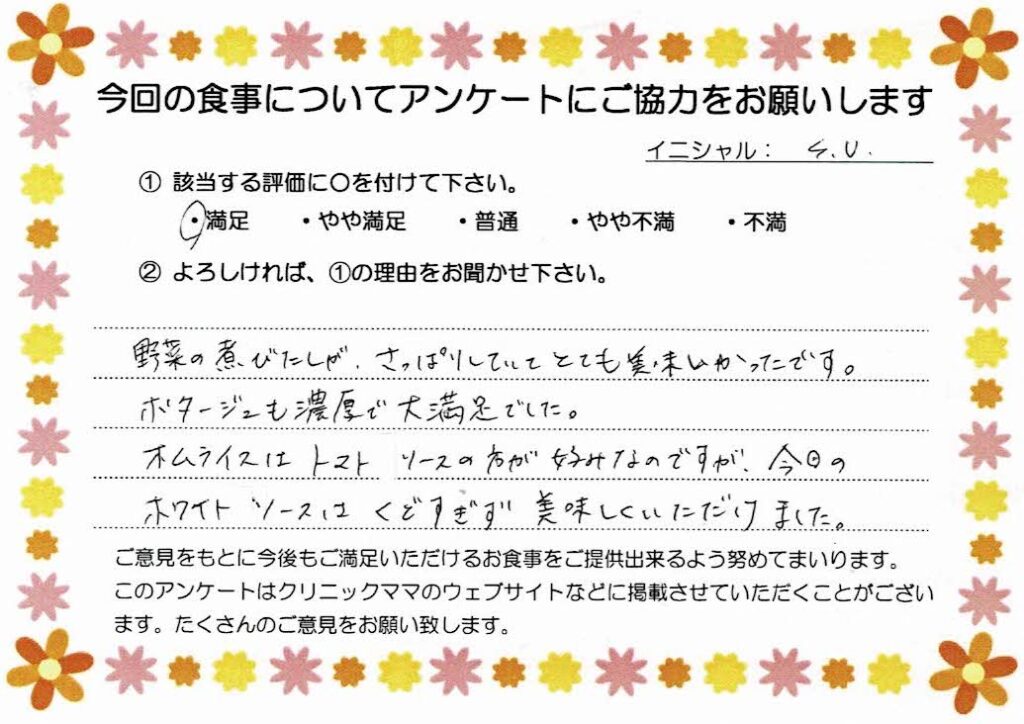 今回の食事についてアンケートにご協力をお願いします
イニシャル： S.U.
① 該当する評価に〇を付けて下さい。
・満足 ・やや満足 ・普通 ・やや不満 ・不満
② よろしければ、①の理由をお聞かせ下さい。
野菜の煮びたしが、さっぱりしていてとても美味しかったです。
ポタージュも濃厚で大満足でした。
オムライスはトマトソースの方が好みなのですが、今日の
ホワイトソースはくどすぎず美味しくいただけました。
ご意見をもとに今後もご満足いただけるお食事をご提供出来るよう努めてまいります。
このアンケートはクリニックママのウェブサイトなどに掲載させていただくことがござい
ます。たくさんのご意見をお願い致します。